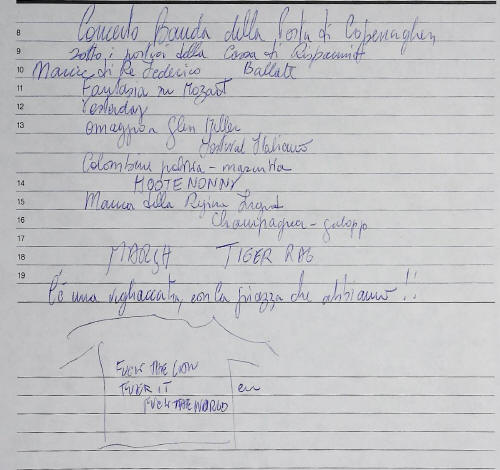 8 Concerto Banda della Posta di Copenaghen
9 sotto i portici della Cassa di Risparmio
10 Marcia di Re Federico Ballett
11 Fantasia su Mozart
12 Yesterday
13 omaggio a Glen Miller
Festival Italiano
Colombine polka - mazurka
14 HOOTENANNY
15 Marcia della Regina Ingrid
16 Champagner - galopp
17
18 MARCH TIGER RAG
19 C'è una vigliaccata, con la piazza che abbiamo!!
FUCK THE LION
FUCK IT
FUCK THE WORLD